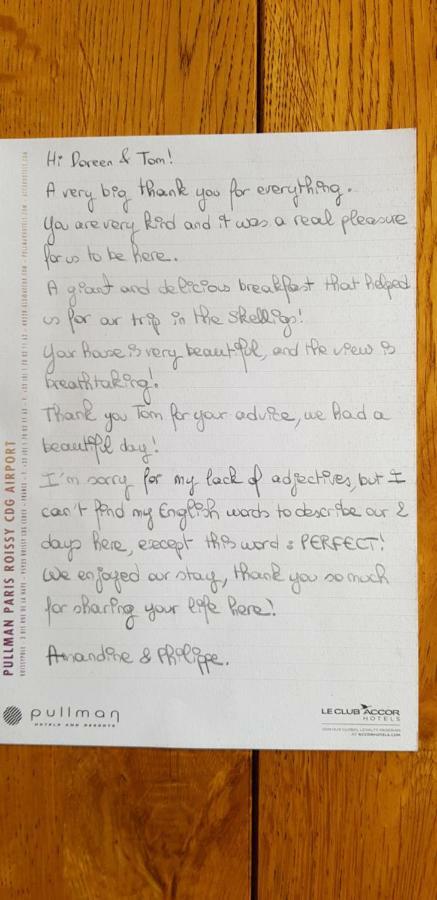 Hi Doreen & Tom!
A very big thank you for everything.
You are very kind and it was a real pleasure
for us to be here.
A giant and delicious breakfast that helped
us for our trip in the Skelligs!
Your house is very beautiful, and the view is
breathtaking!
Thank you Tom for your advice, we had a
beautiful day!
I'm sorry for my lack of adjectives, but I
can't find my English words to describe our 2
days here, except this word : PERFECT!
We enjoyed our stay, thank you so much
for sharing your life here!
Amandine & Philippe.
PULLMAN PARIS ROISSY CDG AIRPORT
pullman
HOTELS AND RESORTS
LE CLUB ACCOR
HOTELS
JOIN OUR GLOBAL LOYALTY PROGRAM
AT ACCORHOTELS.COM